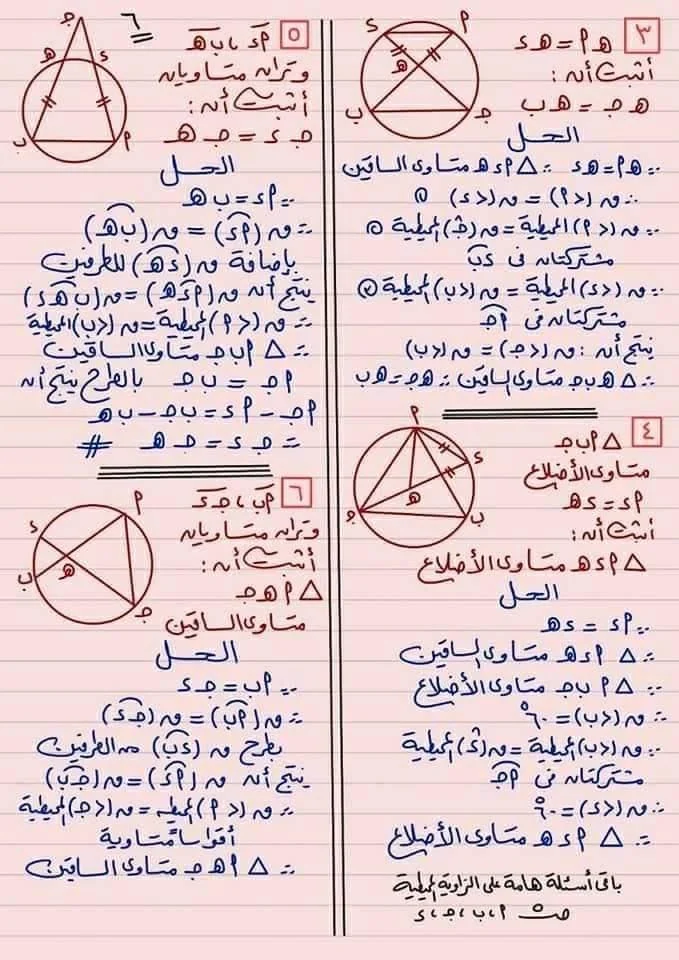 ٣
هـ م = هـ ء
أثبت أن :
هـ جـ = هـ ب
الحل
∵ هـ م = هـ ء ∴ △ م ء هـ متساوى الساقين
∴ ق (∠م) = ق (∠ء) ①
∵ ق (∠م) المحيطية = ق (∠جـ) المحيطية ②
مشتركتان فى ء ب
∵ ق (∠ء) المحيطية = ق (∠ب) المحيطية ③
مشتركتان فى م جـ
ينتج أن : ق (∠جـ) = ق (∠ب)
∴ △ هـ ب جـ متساوى الساقين ∴ هـ جـ = هـ ب
٤
△ م ب جـ
متساوى الأضلاع
م ء = ء هـ
أثبت أن :
△ م ء هـ متساوى الأضلاع
الحل
∵ م ء = ء هـ
∴ △ م ء هـ متساوى الساقين
∵ △ م ب جـ متساوى الأضلاع
∴ ق (∠ب) = ٦٠°
∵ ق (∠ب) المحيطية = ق (∠ء) المحيطية
مشتركتان فى م جـ
∴ ق (∠ء) = ٦٠°
∴ △ م ء هـ متساوى الأضلاع
باقى أسئلة هامة على الزاوية المحيطية
م ، ب ، جـ ، ء
٦
٥
م ء ، ب هـ
وتران متساويان
أثبت أن :
جـ ء = جـ هـ
الحل
∵ م ء = ب هـ
∴ ق (م ء) = ق (ب هـ)
بإضافة ق (ء هـ) للطرفين
ينتج أن ق (م ء هـ) = ق (ب هـ ء)
∴ ق (∠م) المحيطية = ق (∠ب) المحيطية
∴ △ م ب جـ متساوى الساقين
م جـ = ب جـ بالطرح ينتج أن
م جـ - م ء = ب جـ - ب هـ
∴ جـ ء = جـ هـ #
٦
م ب ، جـ ء
وتران متساويان
أثبت أن :
△ م هـ جـ
متساوى الساقين
الحل
∵ م ب = جـ ء
∴ ق (م ب) = ق (جـ ء)
بطرح ق (ء ب) من الطرفين
ينتج أن ق (م ء) = ق (جـ ب)
∴ ق (∠م) المحيطيه = ق (∠جـ) المحيطية
أقواسا متساوية
∴ △ م هـ جـ متساوى الساقين